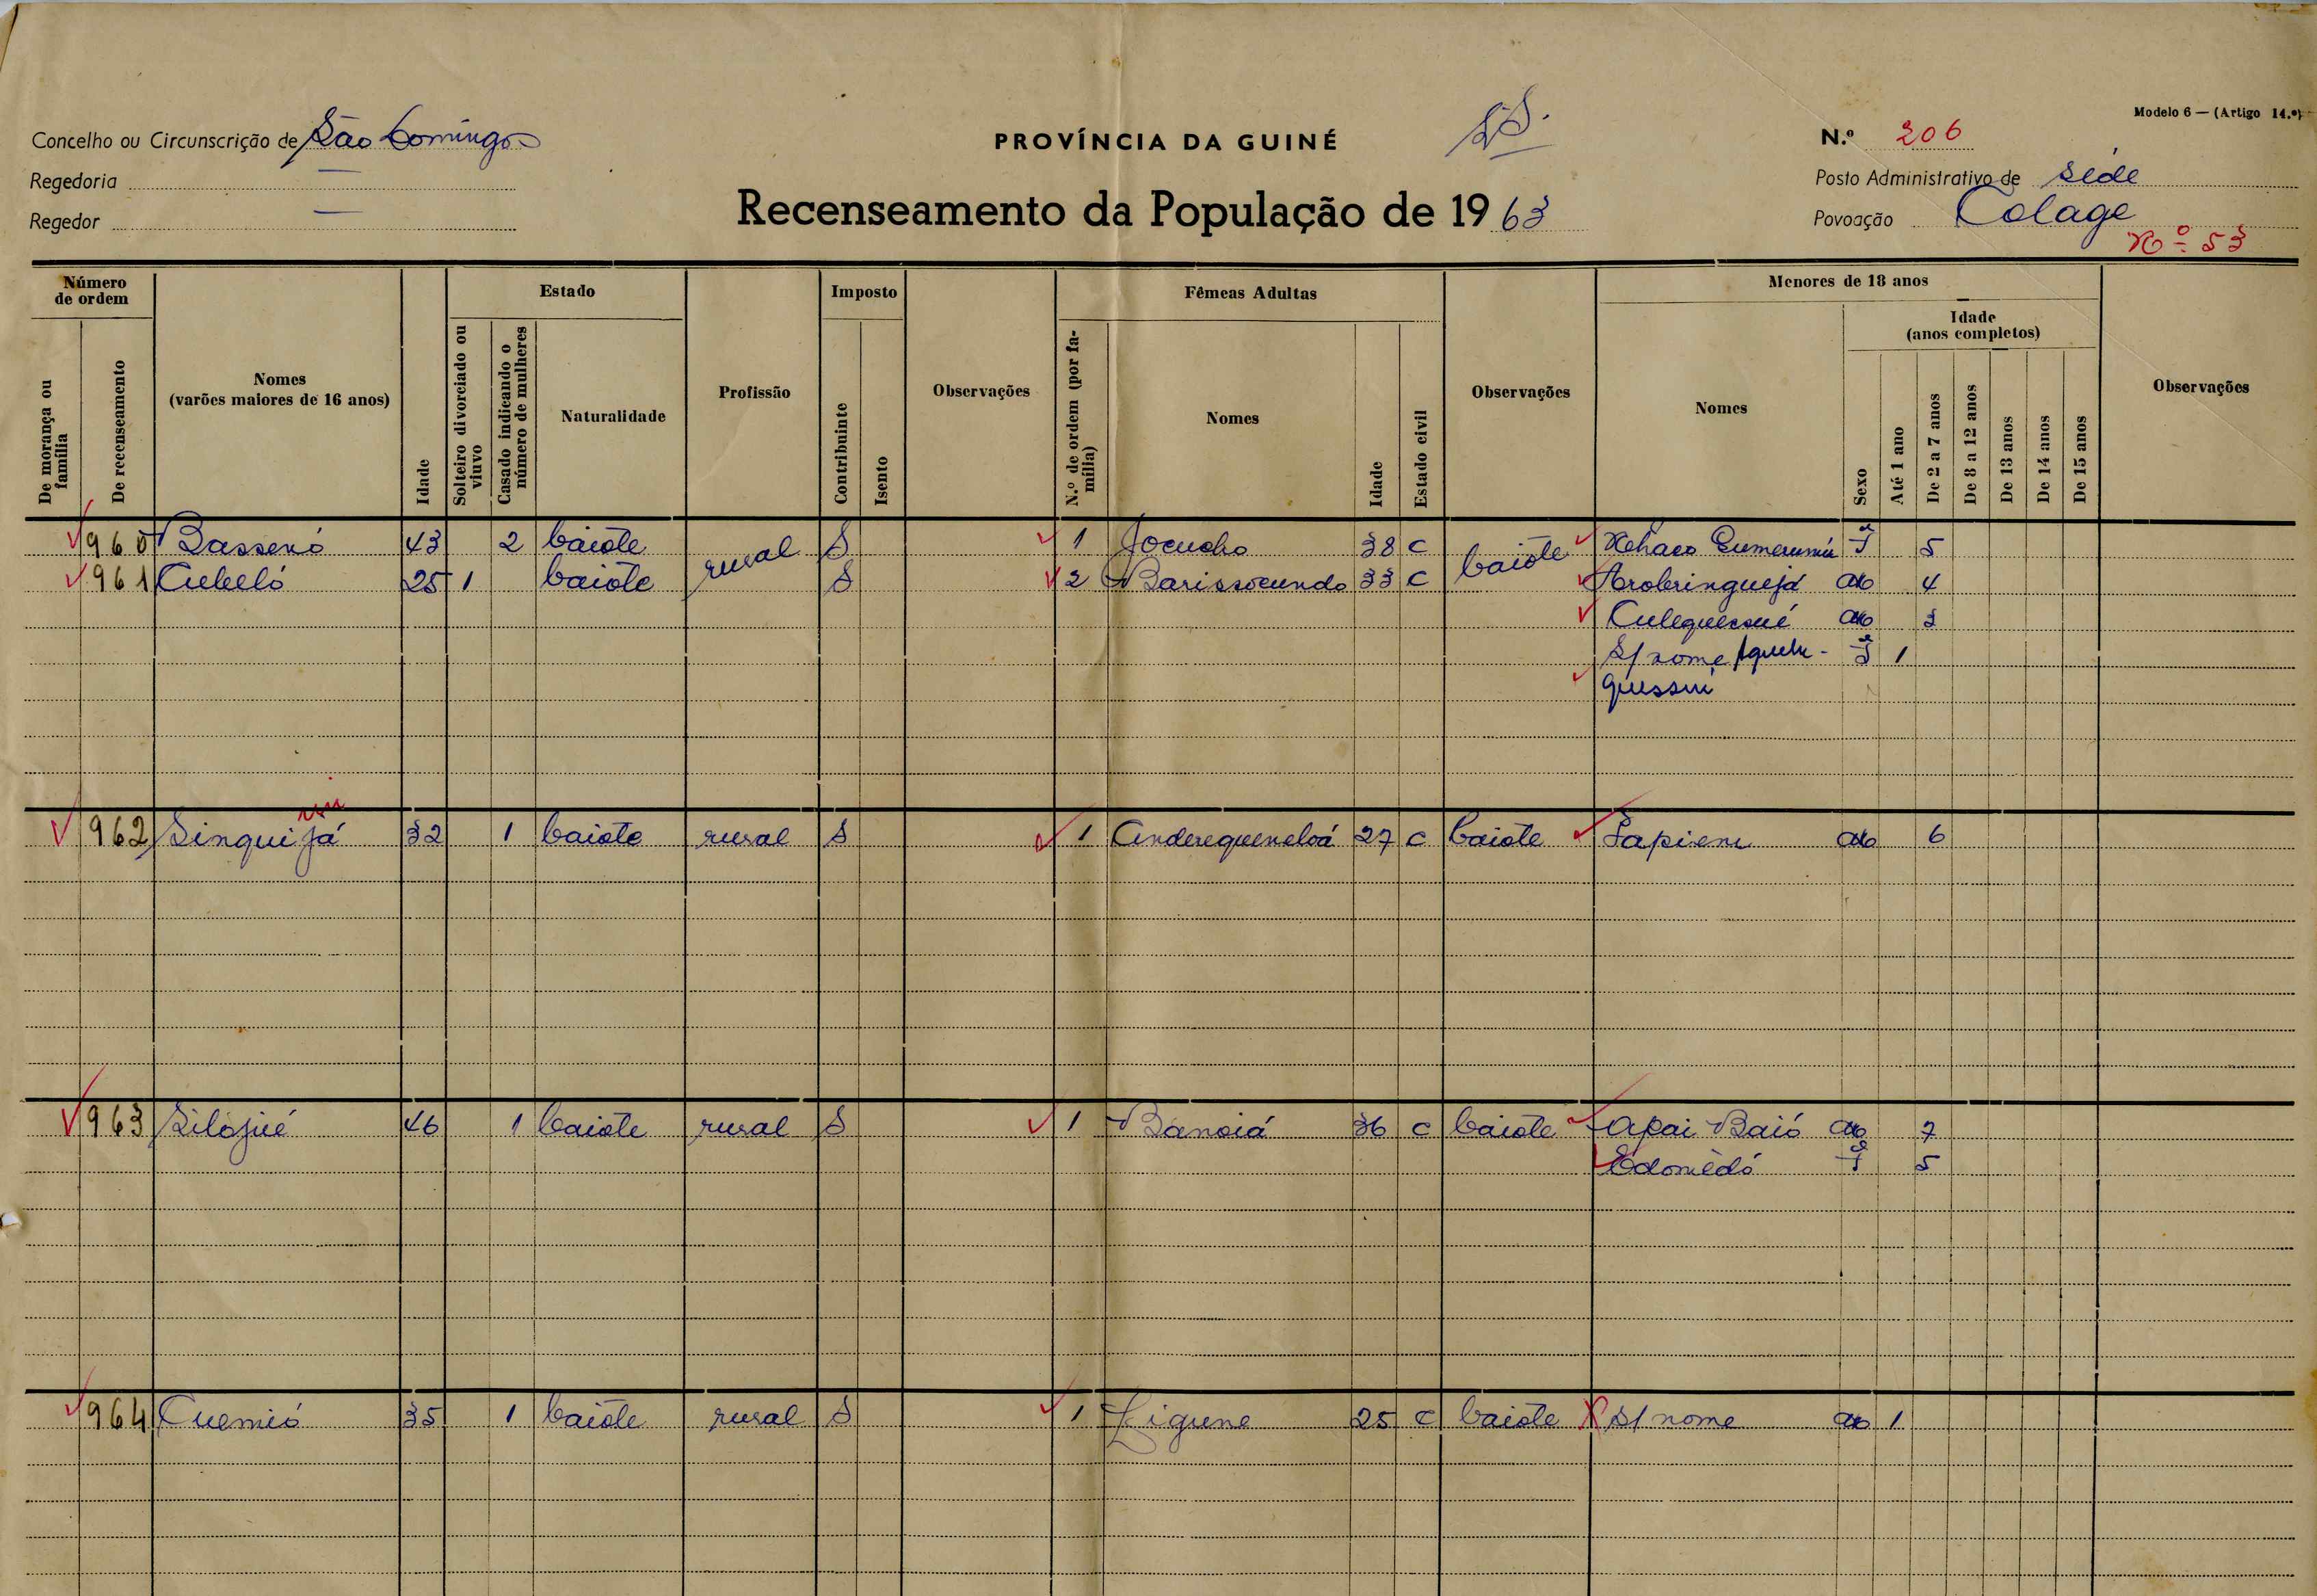 Modelo 6 — (Artigo 14.º)
Concelho ou Circunscrição de São Domingos
PROVÍNCIA DA GUINÉ
N.º 206
Regedoria —
Posto Administrativo de Séde
Regedor —
Recenseamento da População de 1963
Povoação Colage
Nº 53
Número de ordem
Estado
Imposto
Fêmeas Adultas
Menores de 18 anos
Idade
(anos completos)
De morança ou família
De recenseamento
Nomes
(varões maiores de 16 anos)
Idade
Solteiro divorciado ou viuvo
Casado indicando o número de mulheres
Naturalidade
Profissão
Contribuinte
Isento
Observações
N.º de ordem (por família)
Nomes
Idade
Estado civil
Observações
Nomes
Sexo
Até 1 ano
De 2 a 7 anos
De 8 a 12 anos
De 13 anos
De 14 anos
De 15 anos
Observações
960 Bassenó 43 2 baiote rural S 1 Jocucho 38 c baiote F 5
961 Cubeló 25 1 baiote S 2 Barissocundo 33 c Arobringuejá 4
Culequessué 3
S/ nome F 1
962 Sinquijá 32 1 baiote rural S 1 27 c baiote Sapieni 6
963 Silojué 46 1 baiote rural S 1 Banoiá 36 c baiote Apai Baió 7
Edomèdó F 5
964 Cuemió 35 1 baiote rural S 1 Ligune 25 c baiote S/ nome 1